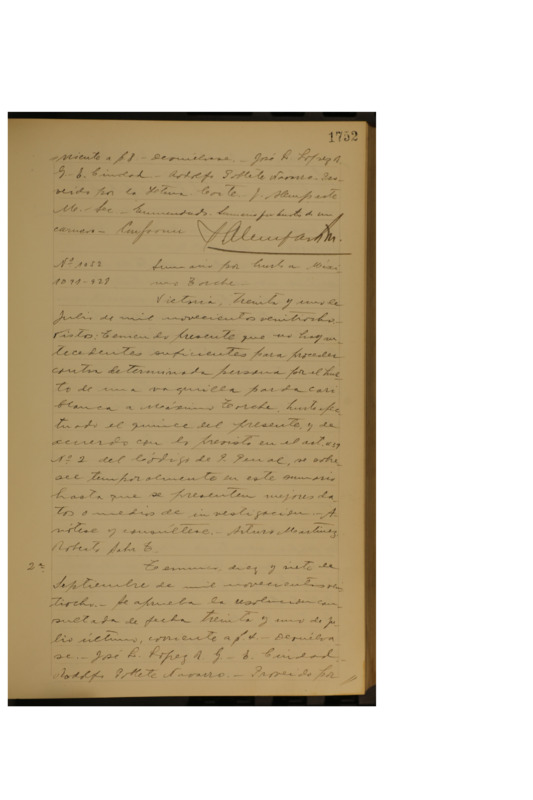 1752
rriente a f 8 - devuélvase. - José R. López R.
G. E. Ciudad - Adolfo Poblete Navarro. Pro-
veido por la Iltma Corte. J.
Ms. Sec - Enmendado. Sumario por hurto de un
Conforme
Nº 1022 Sumario por hurto a Máxi
1090-928 mo Concha
Victoria, treinta y uno de
Julio de mil novecientos veintiocho.
Vistos: Teniendo presente que no hay an-
tecedentes suficientes para proceder
contra determinada persona por el hur-
to de una vaquilla parda cari
blanca a Máximo Concha, hurto efec
tuado el quince del presente y de
acuerdo con lo previsto en el art 439
Nº 2 del Código de P. Penal, se sobre
see temporalmente en este sumario
hasta que se presenten mejores da
tos o medios de investigación. - A
nótese y consúltese. - Arturo Martínez
Roberto E.
2ª. Temuco, diez y siete de
Septiembre de mil novecientos vein
tiocho. - Se aprueba la resolución con
sultada de fecha treinta y uno de Ju
lio último, corriente a f 8. - Devuélva
se. - José R. López R. G. E. Ciudad.
Adolfo Poblete Navarro. - Proveido por